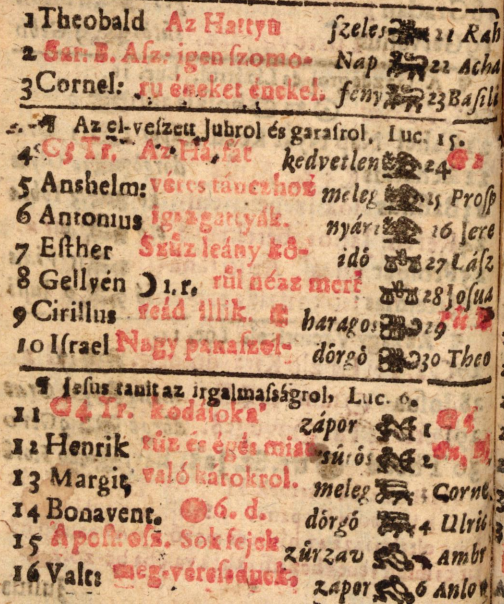 1 Theobald Az Hattyu szeles 21 Rab
2 Sar. B. Asz: igen szomo- Nap 22 Acha
3 Cornel: ru éneket énekel. fény 23 Basill
¶ Az el-veszett Juhrol és garasrol, Luc. 15.
4 G 3 Tr. Az Há- kedvetlen 24
5 Anshelm: véres tánczhoz meleg 25 Prosp
6 Antonius igazgattyák. nyári 26 Jere
7 Esther Szűz leány kö- idő 27 Lász
8 Gellyén ☽ 1. r. rűl néaz mert 28 Josua
9 Cirillus reád illik. haragos 29
10 Israel Nagy panaszol- dörgő 30 Theo
¶ Jesus tanit az irgalmasságrol, Luc. 6.
11 G 4 Tr. kodásoka' zápor 1
12 Henrik tűz és égés miat sürös 2
13 Margit, való károkrol. meleg 3 Corne
14 Bonavent. 6. d. dörgő 4 Ulric
15 Apostosz. Sok fejek zürzav 5 Ambr
16 Valt: meg-véresednek, zapor 6 Anlo